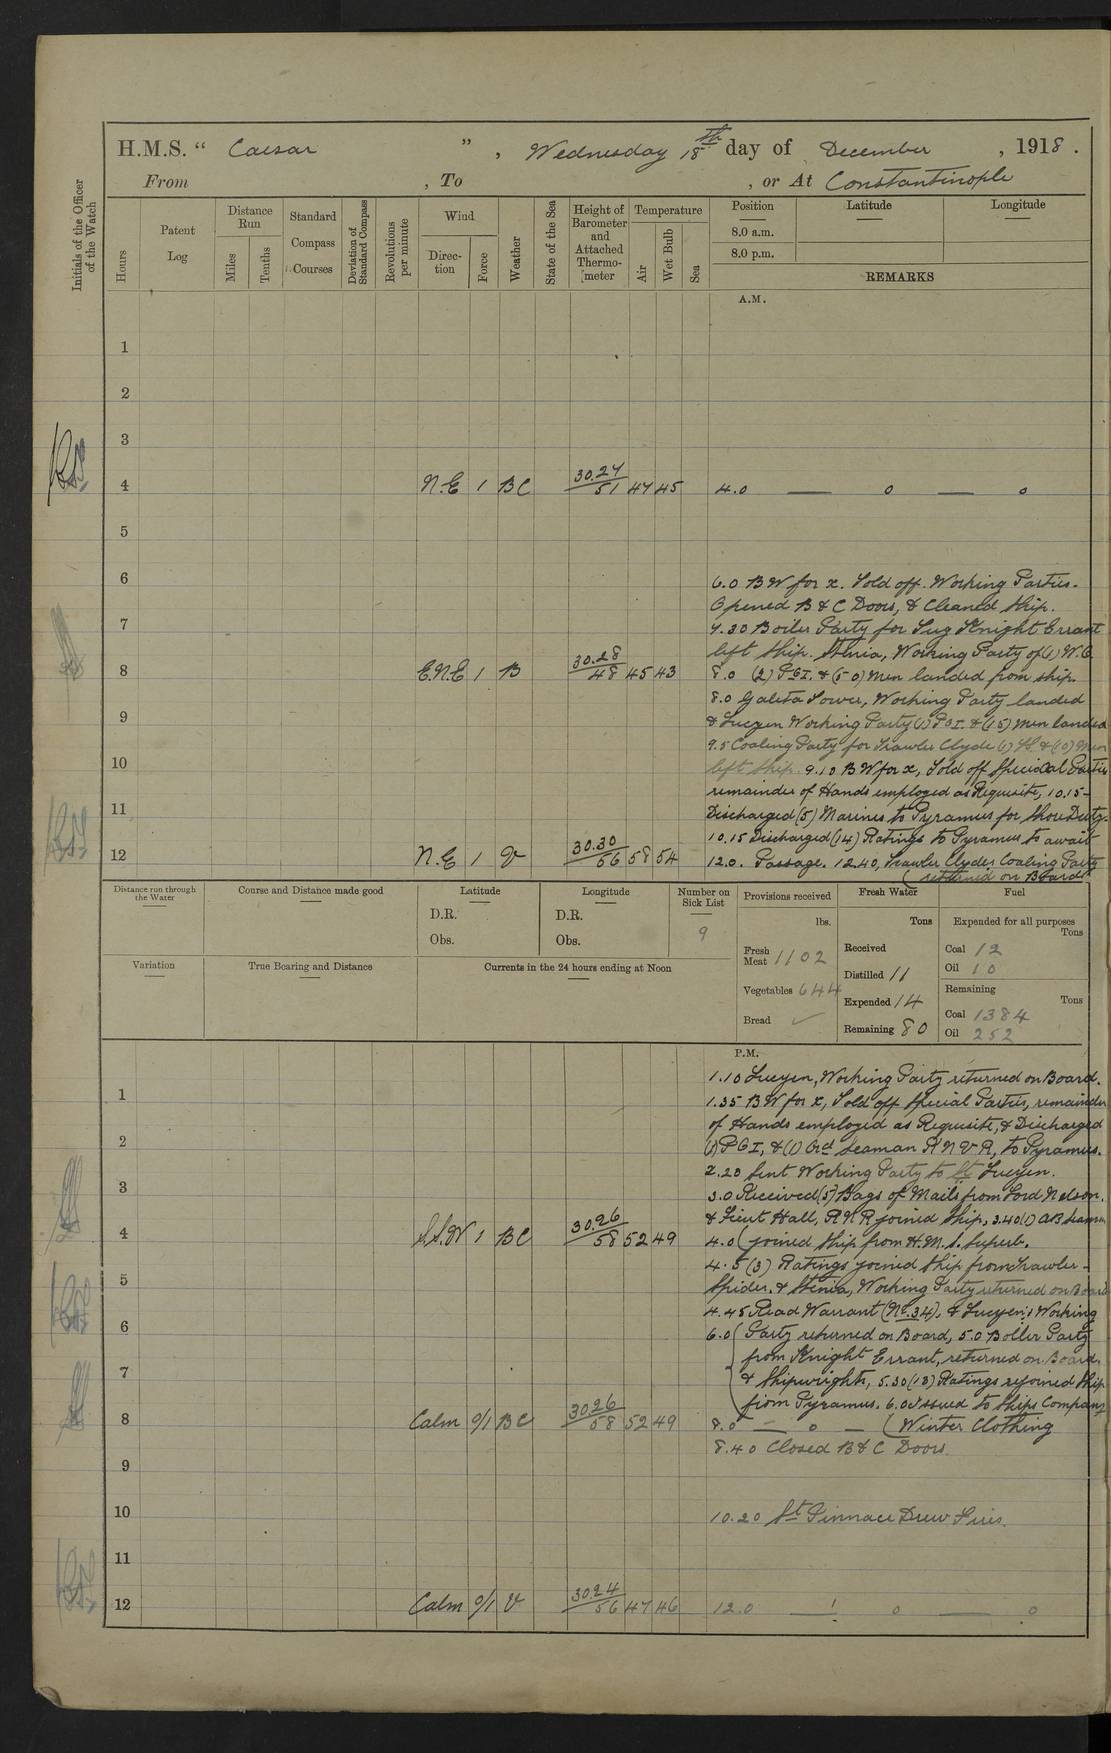 H.M.S. “ Caesar ” , Wednesday 18th day of December , 1918 .
From , To , or At Constantinople
Initials of the Officer of the Watch
Hours
Patent Log
Distance Run
Miles
Tenths
Standard Compass Courses
Deviation of Standard Compass
Revolutions per minute
Wind
Direction
Force
Weather
State of the Sea
Height of Barometer and Attached Thermometer
Temperature
Air
Wet Bulb
Sea
Position Latitude Longitude
8.0 a.m.
8.0 p.m.
REMARKS
A.M.
1
2
3
4 N.E 1 BC 30.27 51 47 45 4.0 — o — o
5
6 6.0 BW for x. Told off Working Parties.
Opened B & C Doors, & Cleaned Ship.
7 7.30 Boiler Party for Tug Knight Errant
left Ship. Stenia, Working Party of (1) W.O.
8 E.N.E 1 B 30.28 48 45 43 8.0 (2) P.O I. & (50) Men landed from ship.
8.0 Galeta Tower, Working Party landed
9 & Tuezen Working Party (1) P.O I. & (15) Men landed
9.5 Coaling Party for Trawler Clyde (1) & (10) Men
10 left Ship. 9.10 BW for x, Told off Special Parties
remainder of Hands employed as Requisite, 10.15-
11 Discharged (5) Marines to Pyramus for Shore Duty.
10.15 Discharged (14) Ratings to Pyramus to await
12 N.E 1 V 30.30 56 58 54 12.0. Passage. 12.40, Trawler Clyde, Coaling Party
(returned on Board.
Distance run through the Water
Course and Distance made good
Latitude
D.R.
Obs.
Longitude
D.R.
Obs.
Number on Sick List
9
Variation
True Bearing and Distance
Currents in the 24 hours ending at Noon
Provisions received
lbs.
Fresh Meat 1102
Vegetables 644
Bread ✓
Fresh Water
Tons
Received
Distilled 11
Expended 14
Remaining 80
Fuel
Expended for all purposes
Tons
Coal 12
Oil 10
Remaining
Tons
Coal 1384
Oil 252
P.M.
1.10 Tuezen, Working Party returned on Board.
1 1.35 BW for x, Told off Special Parties, remainder
of Hands employed as Requisite, & Discharged
2 (1) P.O I, & (1) Ord Seaman RNVR, to Pyramus.
2.20 Sent Working Party to St Tuezen.
3 3.0 Received (5) Bags of Mails from Lord Nelson,
& Lieut Hall, RNR joined Ship, 3.40 (1) AB Seaman
4 S.S.W 1 BC 30.26 58 52 49 4.0 (joined Ship from H.M.S. Superb.
4.5 (3) Ratings joined Ship from Trawler -
5 Spider. & Stenia, Working Party returned on Board
4.45 Read Warrant (No. 34), & Tuezen, Working
6 6.0 (Party returned on Board, 5.0 Boiler Party
from Knight Errant, returned on Board,
7 & Shipwrights, 5.30 (18) Ratings rejoined Ship
from Pyramus. 6.0 Issued to Ships Company
8 Calm 0/1 BC 30.26 58 52 49 8.0 — o — (Winter Clothing
8.40 Closed B & C Doors.
9
10 10.20 St Pinnace Drew Fires.
11
12 Calm 0/1 V 30.24 56 47 46 12.0 — o — o